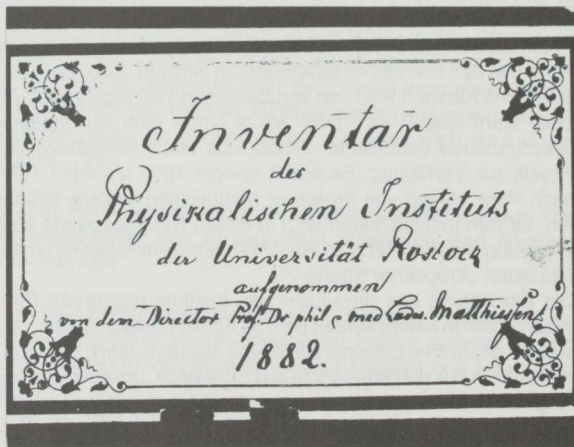 Inventar
des
Physikalischen Instituts
der Universität Rostock
aufgenommen
von dem Director Prof. Dr phil & med Ludw. Matthiessen
1882.